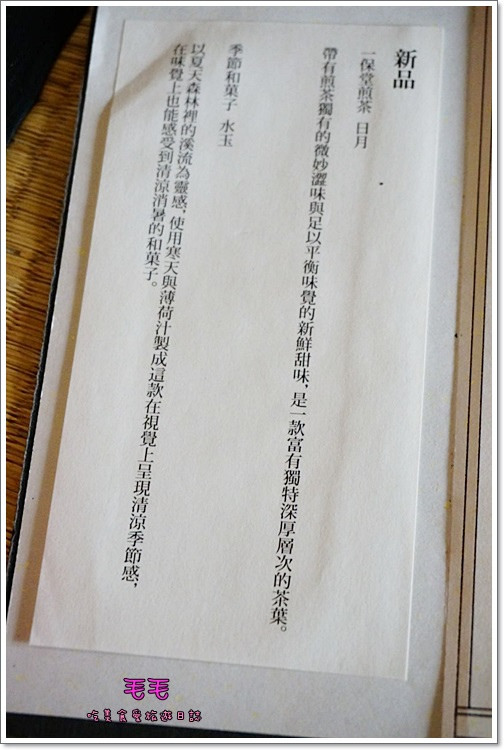 新品
一保堂煎茶 日月
帶有煎茶獨有的微妙澀味與足以平衡味覺的新鮮甜味，是一款富有獨特深厚層次的茶葉。
季節和菓子 水玉
以夏天森林裡的溪流為靈感，使用寒天與薄荷汁製成這款在視覺上呈現清涼季節感，
在味覺上也能感受到清涼消暑的和菓子。
毛毛
吃美食愛旅遊日誌